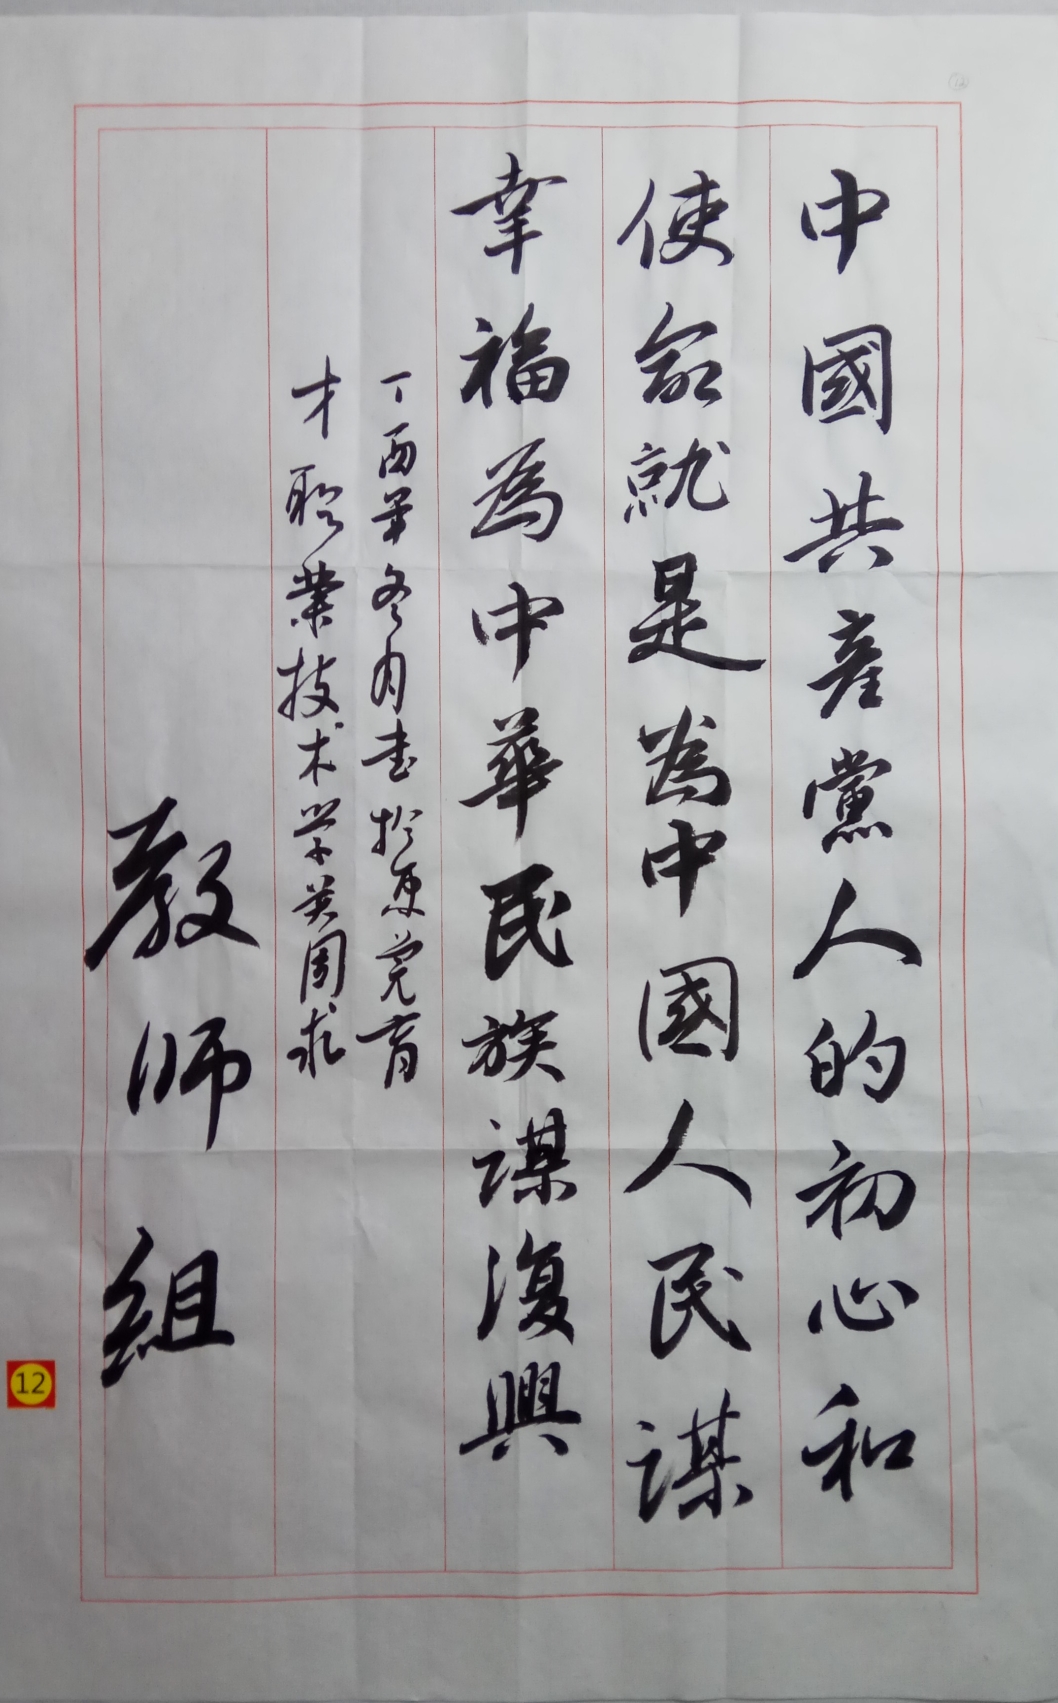 中國共產黨人的初心和
使命就是為中國人民謀
幸福為中華民族謀復興
丁酉年冬月書於東莞育
才職業技术学英周求
教师組
12